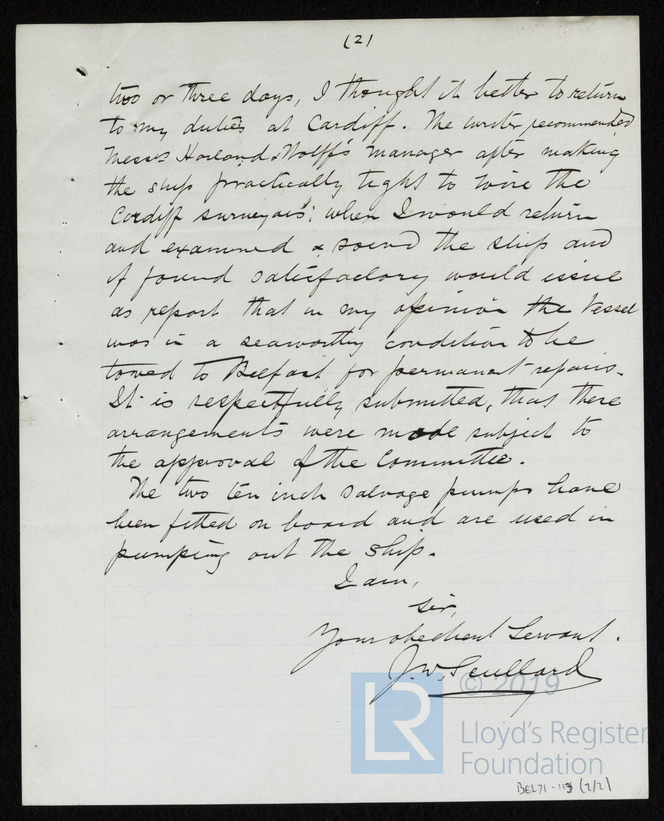 (2)
two or three days, I thought it better to return
to my duties at Cardiff. The writer recommended
Messrs Harland & Wolff's manager after making
the ship practically tight to wire the
Cardiff surveyors; when I would return
and examined & sound the ship and
if found satisfactory would issue
as report that in my opinion the Vessel
was in a seaworthy condition to be
towed to Belfast for permanent repairs.
It is respectfully submitted, that these
arrangements were made subject to
the approval of the Committee.
The two ten inch salvage pumps have
been fitted on board and are used in
pumping out the ship.
I am,
Sir,
Your obedient Servant.
J.W. Scullard
© 2019
LR
Lloyd's Register
Foundation
BEL71-113 (2/2)